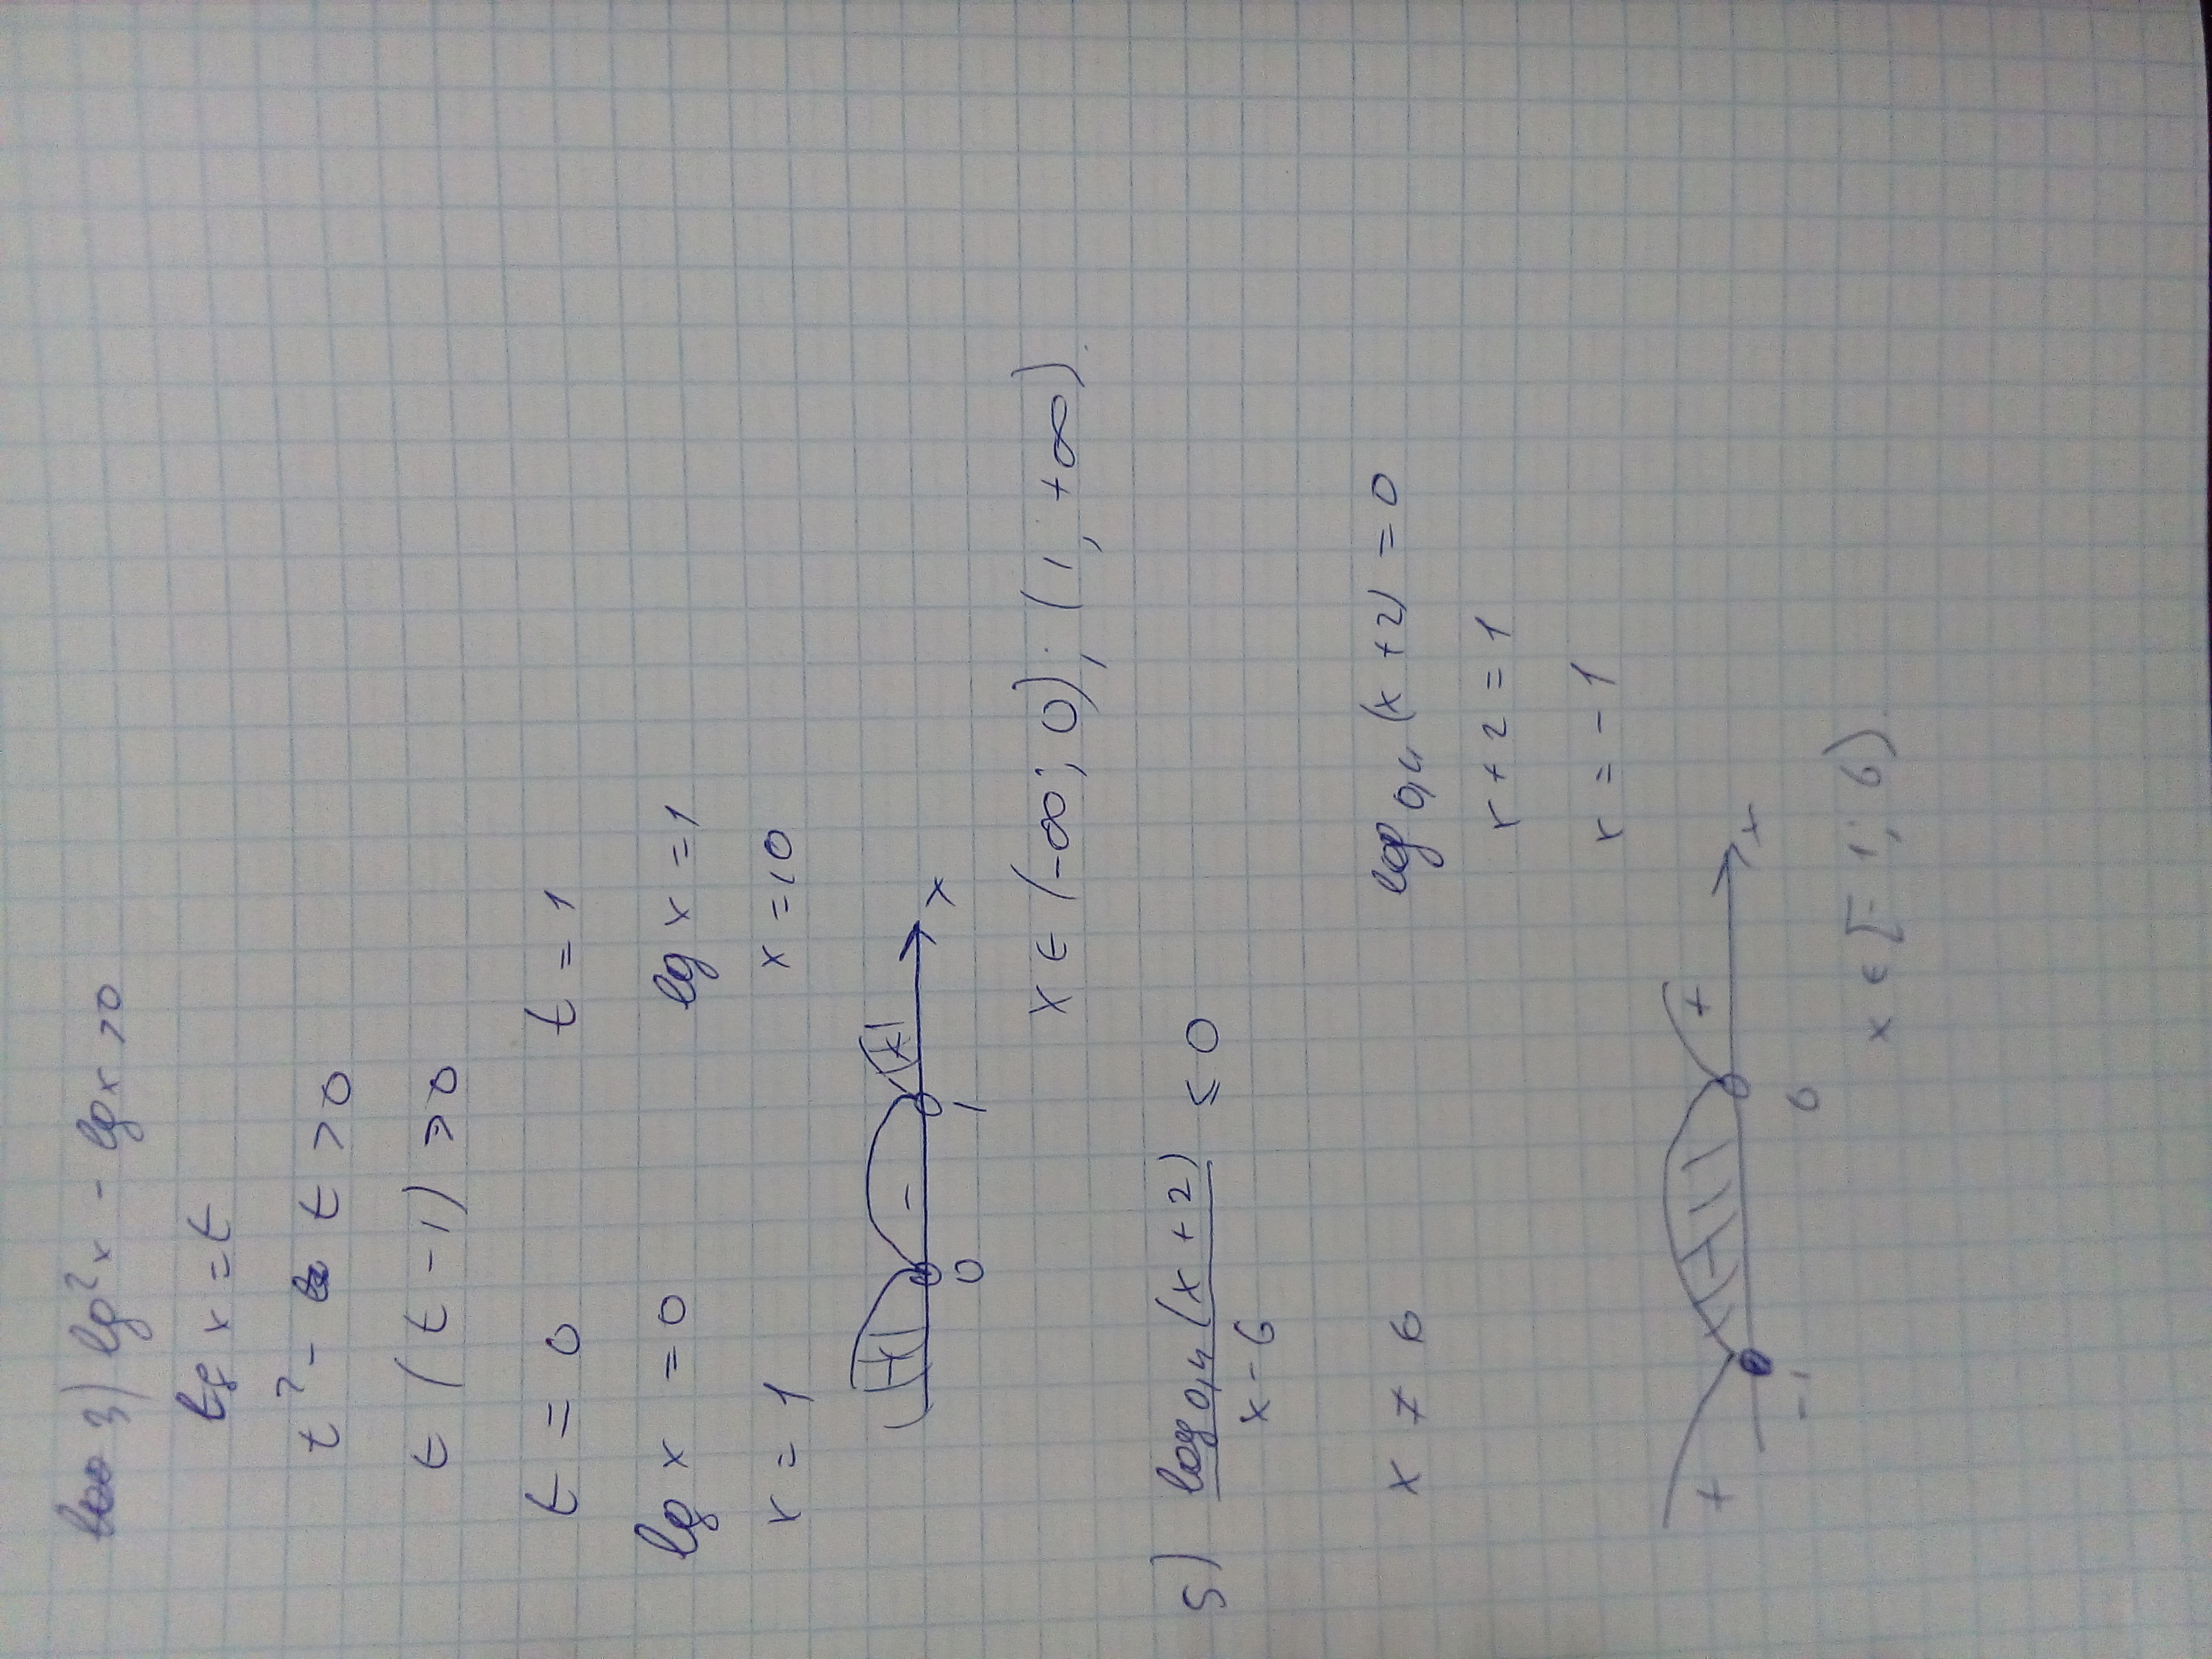 3) lg²x - lgx >0
lg x = t
t² - t > 0
t (t - 1) > 0
t = 0 t = 1
lg x = 0 lg x = 1
x = 1 x = 10
+ - + x
0 1
x ∈ (-∞; 0); (1; +∞).
5) log₀,₄(x + 2) / x - 6 ≤ 0
x ≠ 6 log₀,₄(x + 2) = 0
x + 2 = 1
x = -1
+ - + x
-1 6
x ∈ [-1; 6)